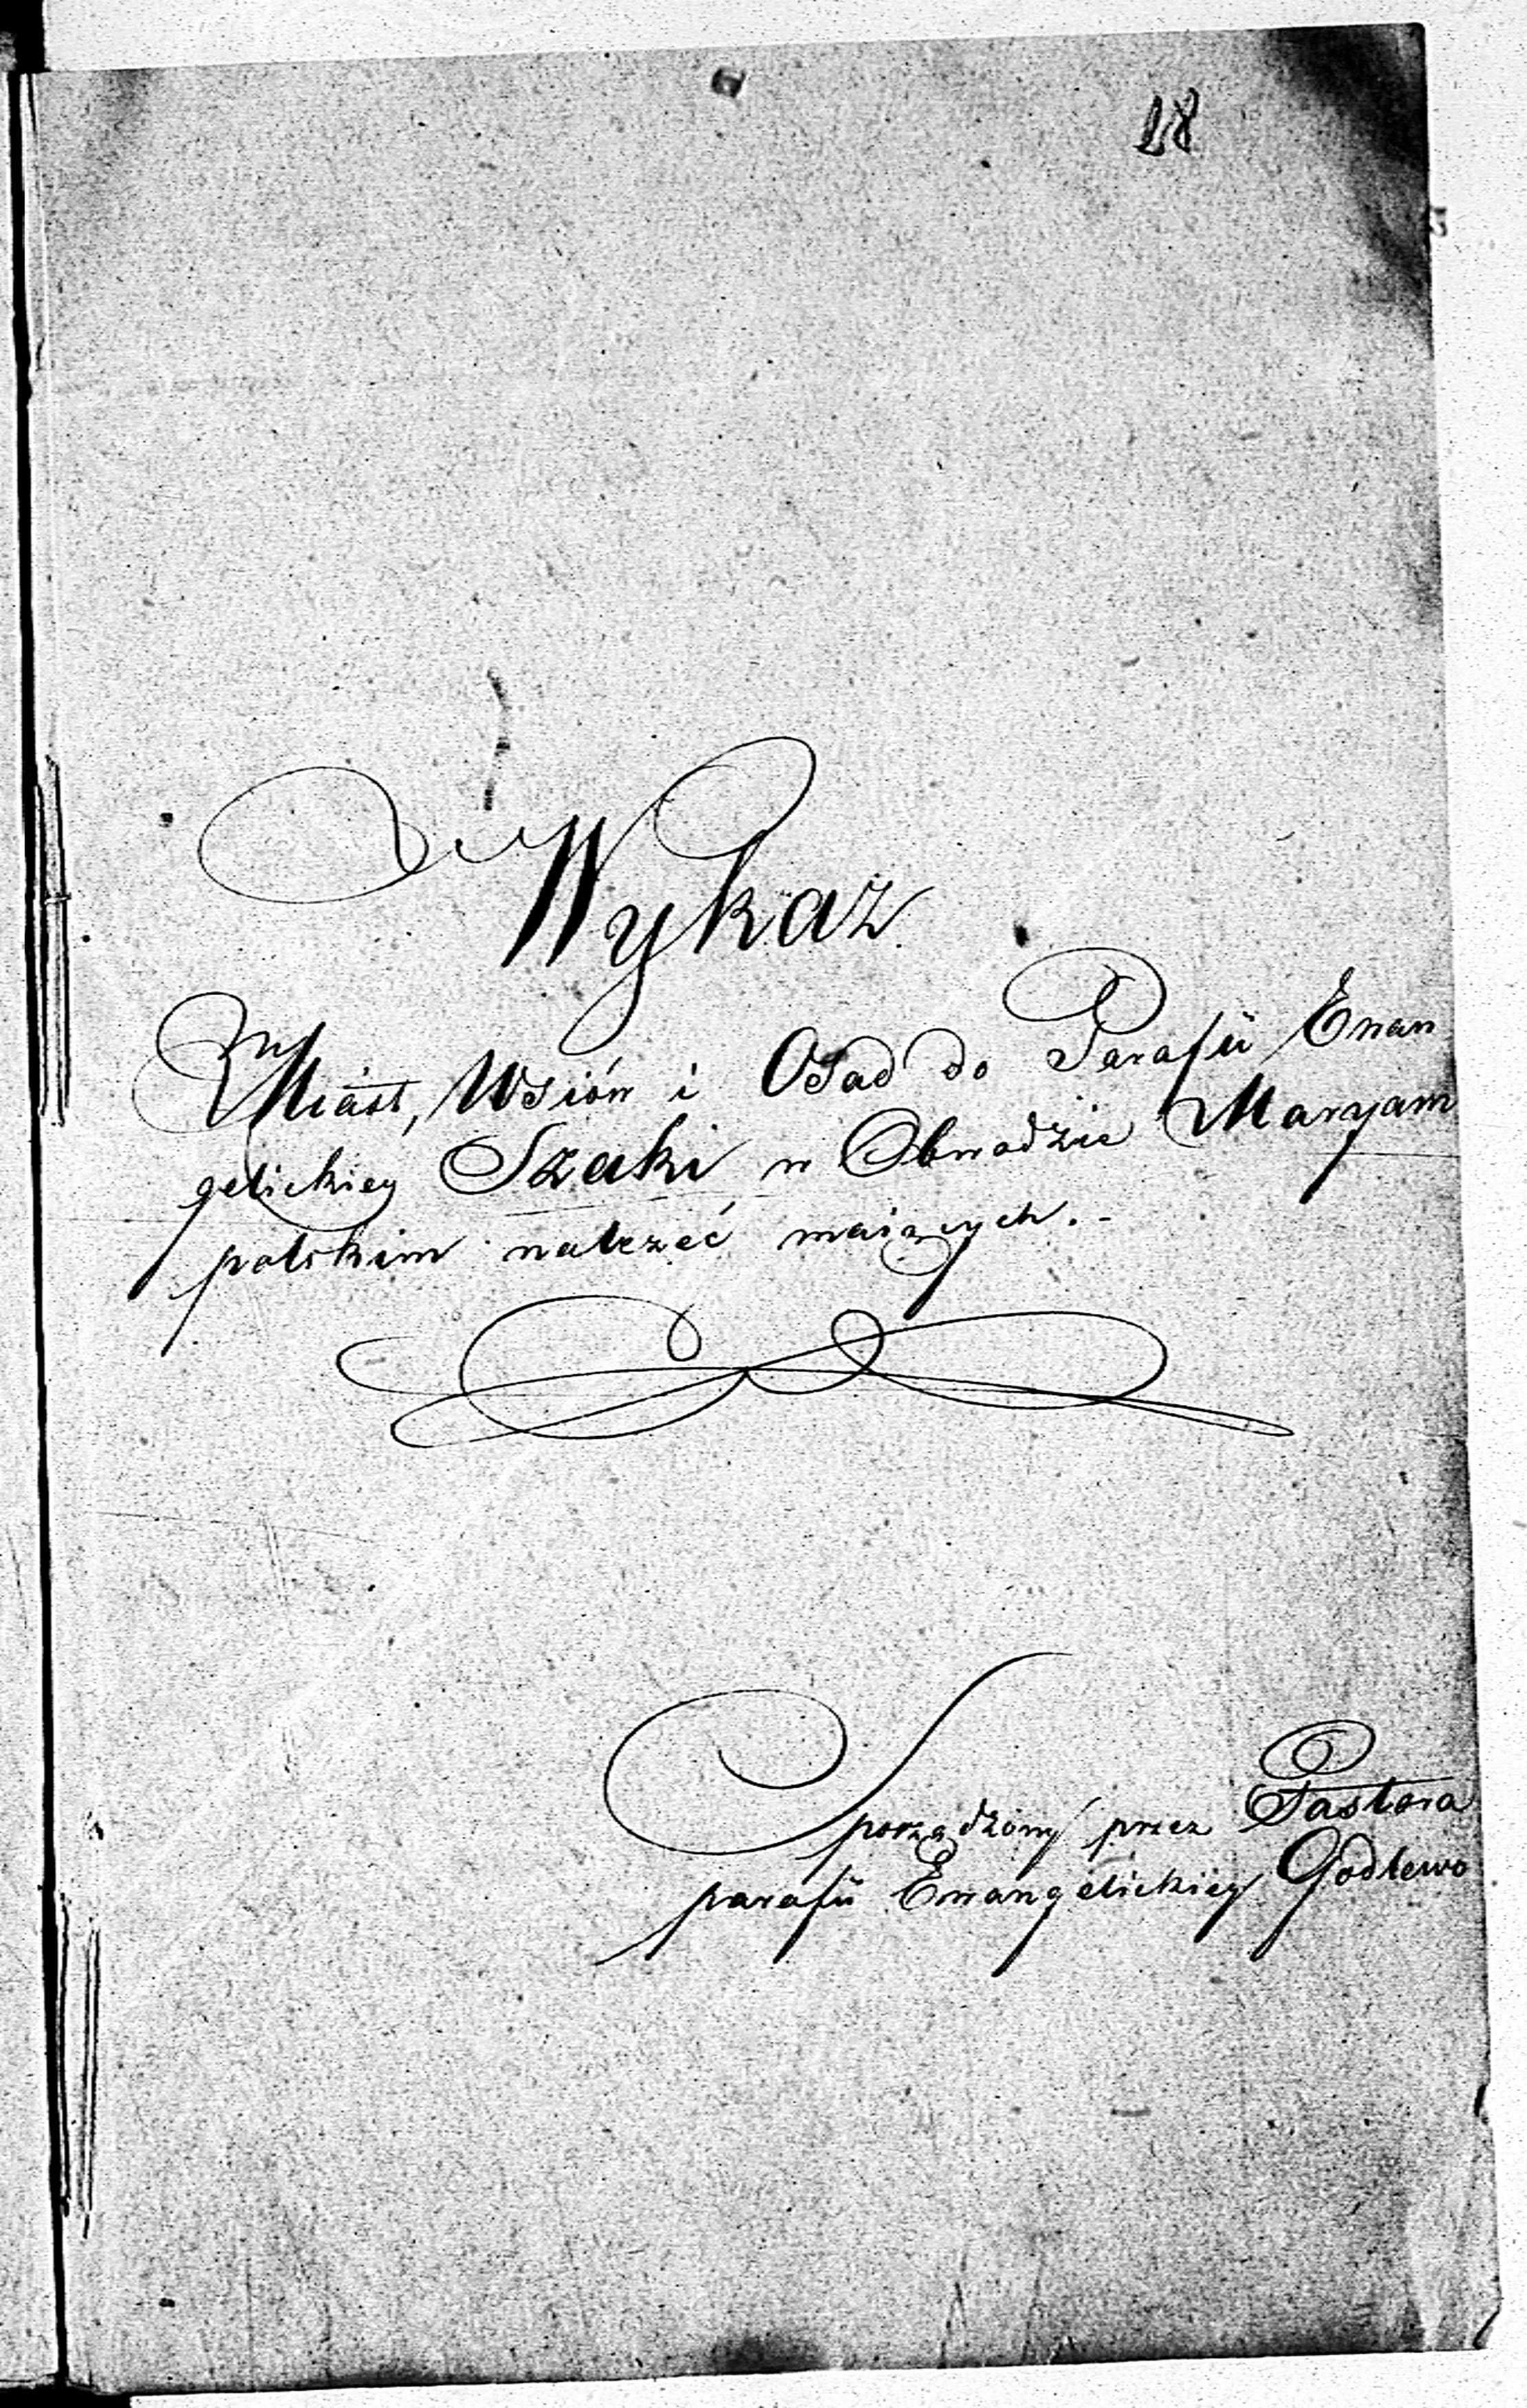 28
Wykaz
Miast, Wsiów i Osad do Parafii Ewan
gelickiey Szaki w Obwodzie Maryam
polskim należeć maiących. -
Sporządzony przez Pastora
parafii Ewangelickiey Godlewo